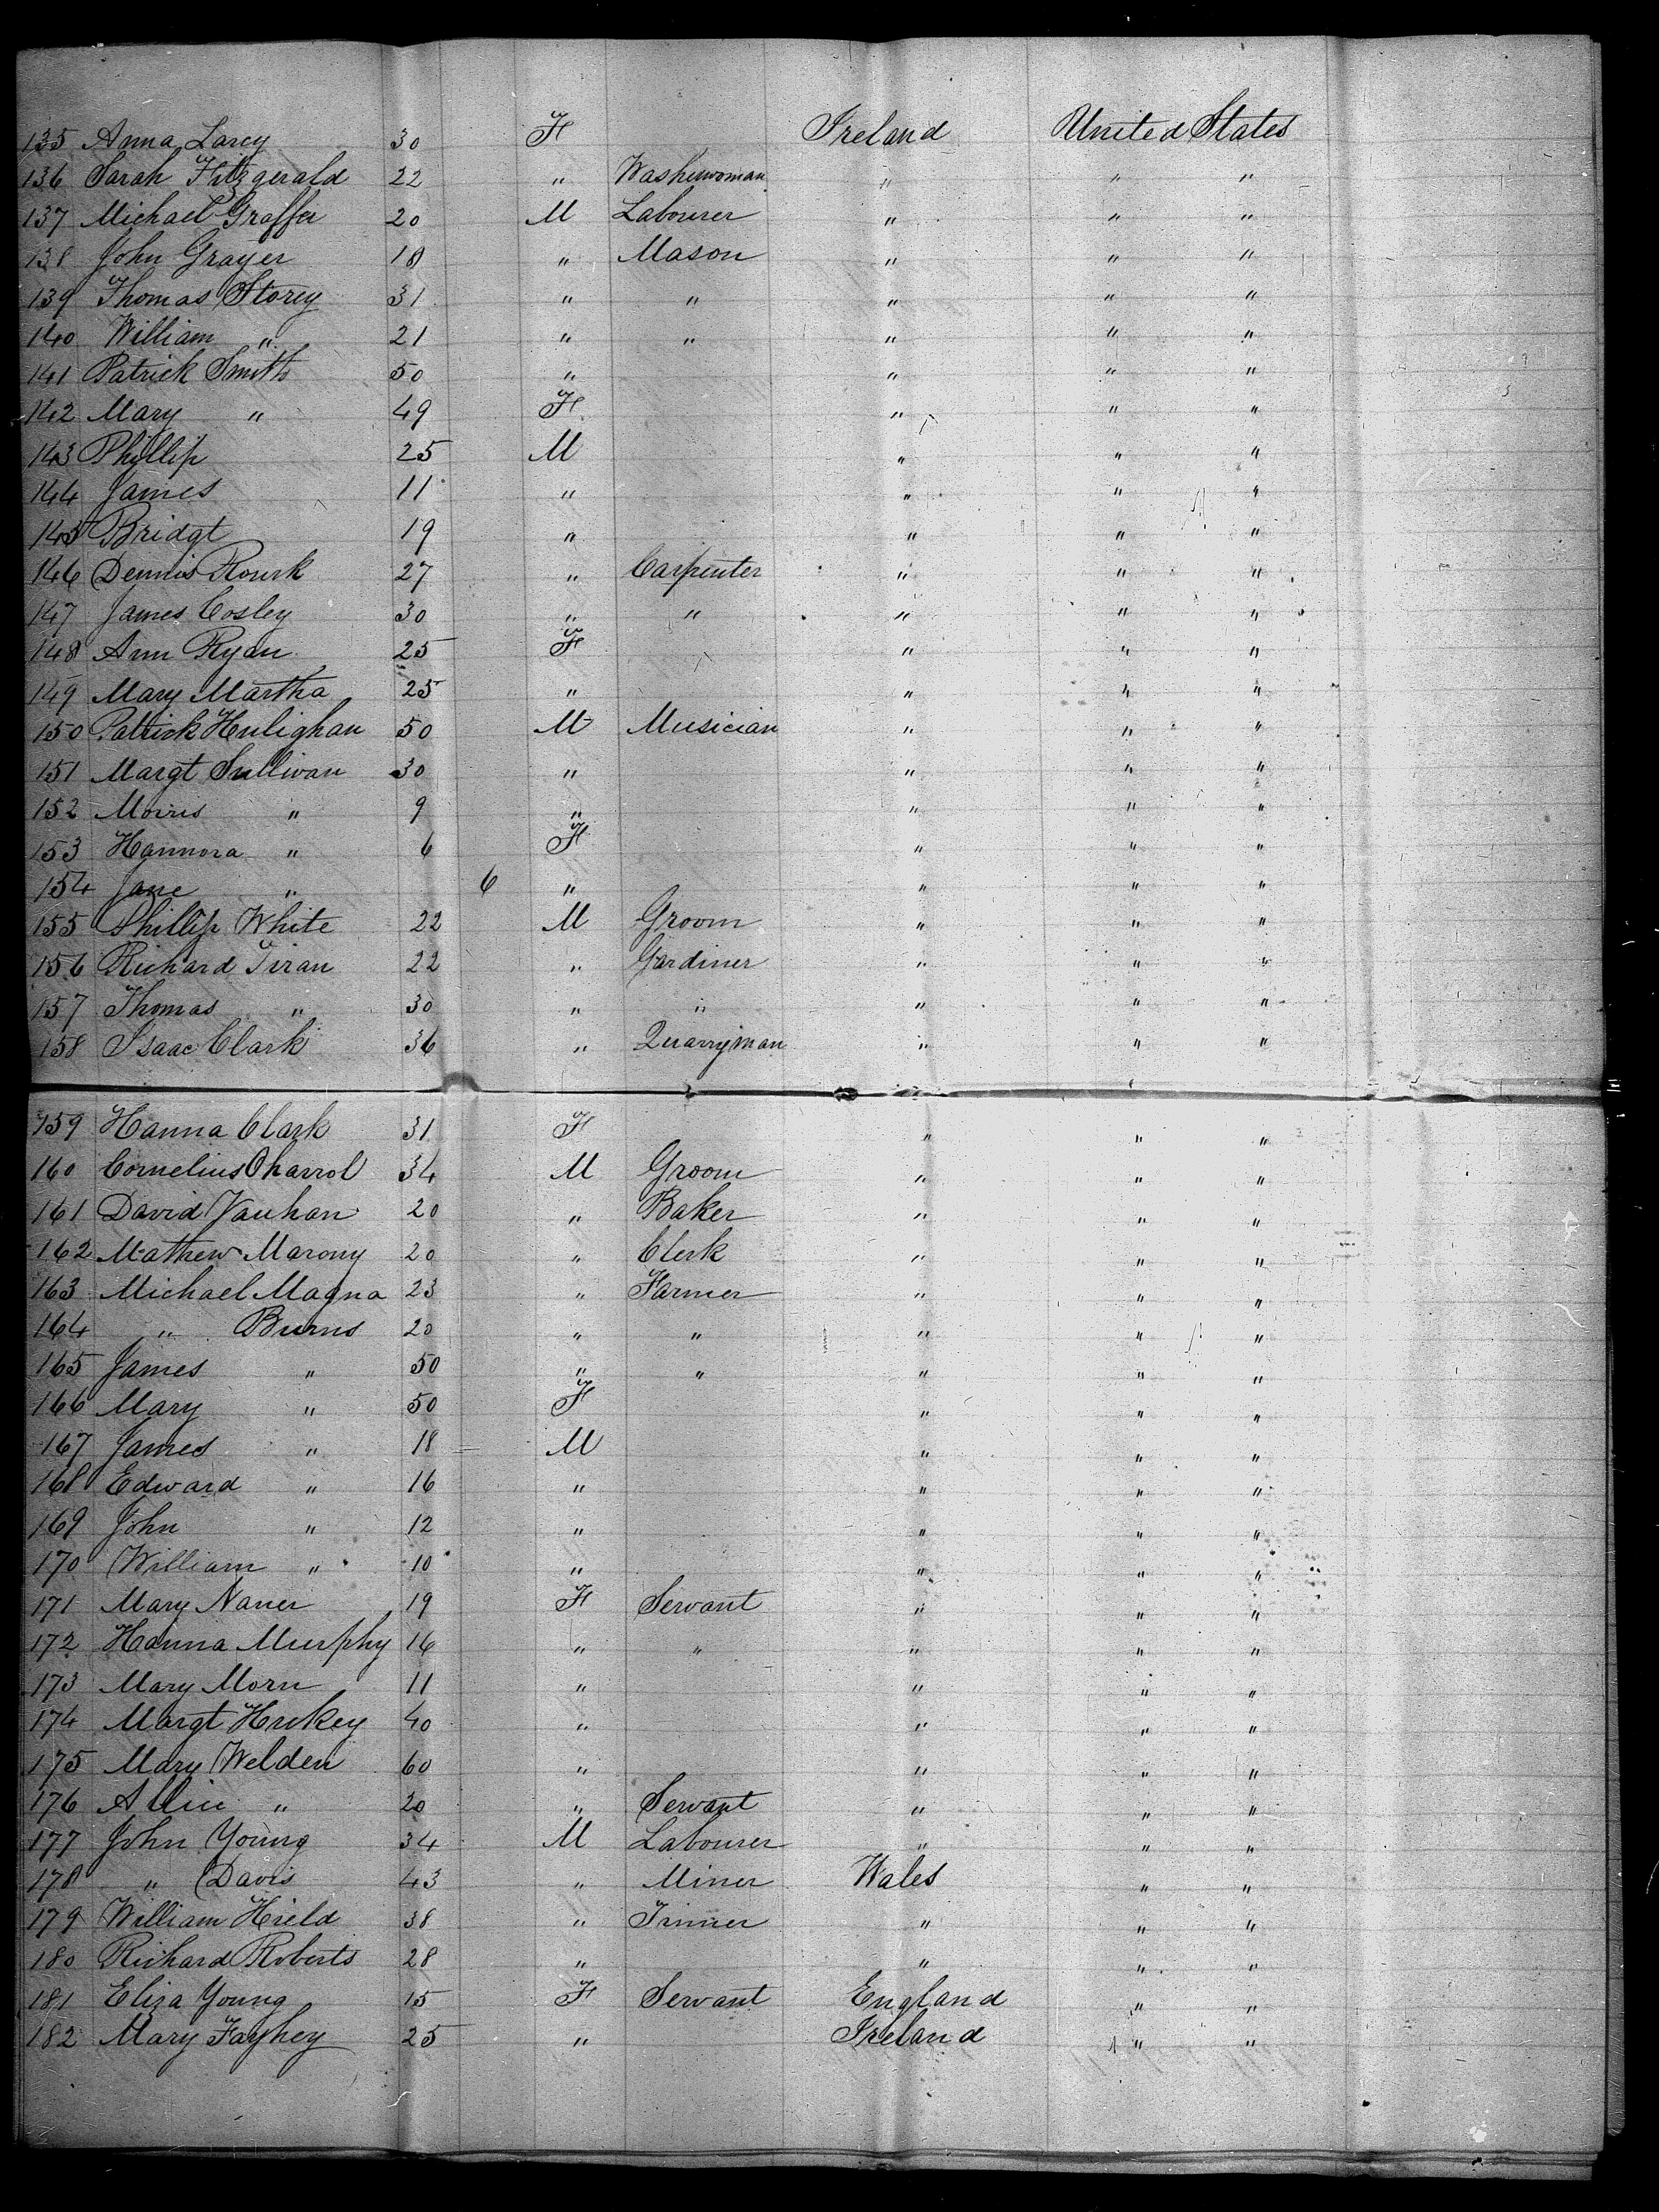 135 Anna Larcy 30 F Ireland United States
136 Sarah Fitzgerald 22 " Washerwoman " " "
137 Michael Graffer 20 M Labourer " " "
138 John Grayer 18 " Mason " " "
139 Thomas Storey 31 " " " " "
140 William " 21 " " " " "
141 Patrick Smith 50 " " " "
142 Mary " 49 F " " "
143 Phillip 25 M " " "
144 James 11 " " " "
145 Bridgt 19 " " " "
146 Dennis Rourk 27 " Carpenter " " "
147 James Cosley 30 " " " " "
148 Ann Ryan 25 F " " "
149 Mary Martha 25 " " " "
150 Patrick Hulighan 50 M Musician " " "
151 Margt Sullivan 30 " " " "
152 Morris " 9 " " " "
153 Hannora " 6 F " " "
154 Jane " 6 " " " "
155 Phillip White 22 M Groom " " "
156 Richard Tiran 22 " Gardiner " " "
157 Thomas " 30 " " " " "
158 Isaac Clark 36 " Quarryman " " "
159 Hanna Clark 31 F " " "
160 Cornelius Oharrol 34 M Groom " " "
161 David Vauhan 20 " Baker " " "
162 Mathew Marony 20 " Clerk " " "
163 Michael Magna 23 " Farmer " " "
164 " Burns 20 " " " " "
165 James " 50 " " " " "
166 Mary " 50 F " " "
167 James " 18 M " " "
168 Edward " 16 " " " "
169 John " 12 " " " "
170 William " 10 " " " "
171 Mary Naner 19 F Servant " " "
172 Hanna Murphy 16 " " " " "
173 Mary Morn 11 " " " "
174 Margt Hukey 40 " " " "
175 Mary Welden 60 " " " "
176 Allice " 20 " Servant " " "
177 John Young 34 M Labourer " " "
178 " Davis 43 " Miner Wales " "
179 William Hield 38 " " " "
180 Richard Roberts 28 " " " "
181 Eliza Young 15 F Servant England " "
182 Mary Fayhey 25 " Ireland " "